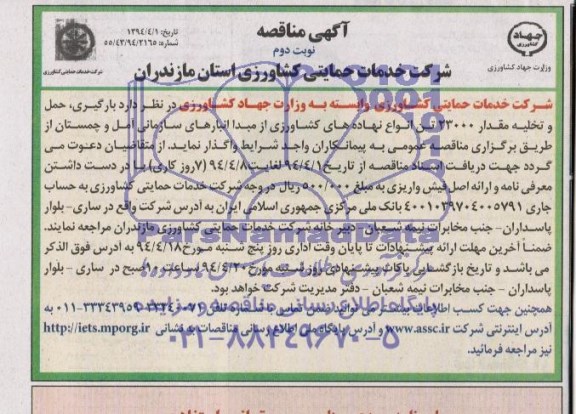 آگهی مناقصه
نوبت دوم
شرکت خدمات حمایتی کشاورزی استان مازندران
تاریخ: ۱۳۹۴/۴/۱
شماره: ۵۵/۴۳/۹۴/۲۱۶۵
شرکت خدمات حمایتی کشاورزی
جهاد
کشاورزی
وزارت جهاد کشاورزی
شرکت خدمات حمایتی کشاورزی وابسته به وزارت جهاد کشاورزی در نظر دارد بارگیری، حمل
و تخلیه مقدار ۲۳۰۰۰ تن انواع نهاده های کشاورزی از مبدا انبارهای سازمانی آمل و چمستان از
طریق برگزاری مناقصه عمومی به پیمانکاران واجد شرایط واگذار نماید. از متقاضیان دعوت می
گردد جهت دریافت اسناد مناقصه از تاریخ ۹۴/۴/۱ لغایت ۹۴/۴/۸ (۷روز کاری) با در دست داشتن
معرفی نامه و ارائه اصل فیش واریزی به مبلغ ۵۰۰/۰۰۰ ریال در وجه شرکت خدمات حمایتی کشاورزی به حساب
جاری ۴۰۰۱۰۳۹۷۰۴۰۰۵۷۹۱ بانک ملی مرکزی جمهوری اسلامی ایران به آدرس شرکت واقع در ساری- بلوار
پاسداران- جنب مخابرات نیمه شعبان - دبیر خانه شرکت خدمات حمایتی کشاورزی مازندران مراجعه نمایند.
ضمناً آخرین مهلت ارائه پیشنهادات تا پایان وقت اداری روز پنج شنبه مورخ ۹۴/۴/۱۸ به آدرس فوق الذکر
می باشد و تاریخ بازگشایی پاکات پیشنهادی روز شنبه مورخ ۹۴/۴/۲۰ ساعت ۱۰ صبح در ساری - بلوار
پاسداران - جنب مخابرات نیمه شعبان - دفتر مدیریت شرکت خواهد بود.
همچنین جهت کسب اطلاعات بیشتر می توانید ضمن تماس با شماره تلفن ۰۱۱-۳۳۳۴۳۹۵۶ به
آدرس اینترنتی شرکت www.assc.ir و آدرس پایگاه ملی اطلاع رسانی مناقصات به نشانی http://iets.mporg.ir
نیز مراجعه فرمائید.
ParsNamadData
پایگاه اطلاع رسانی مناقصه و مزایده
۰۲۱-۸۸۳۴۹۶۷۰-۵